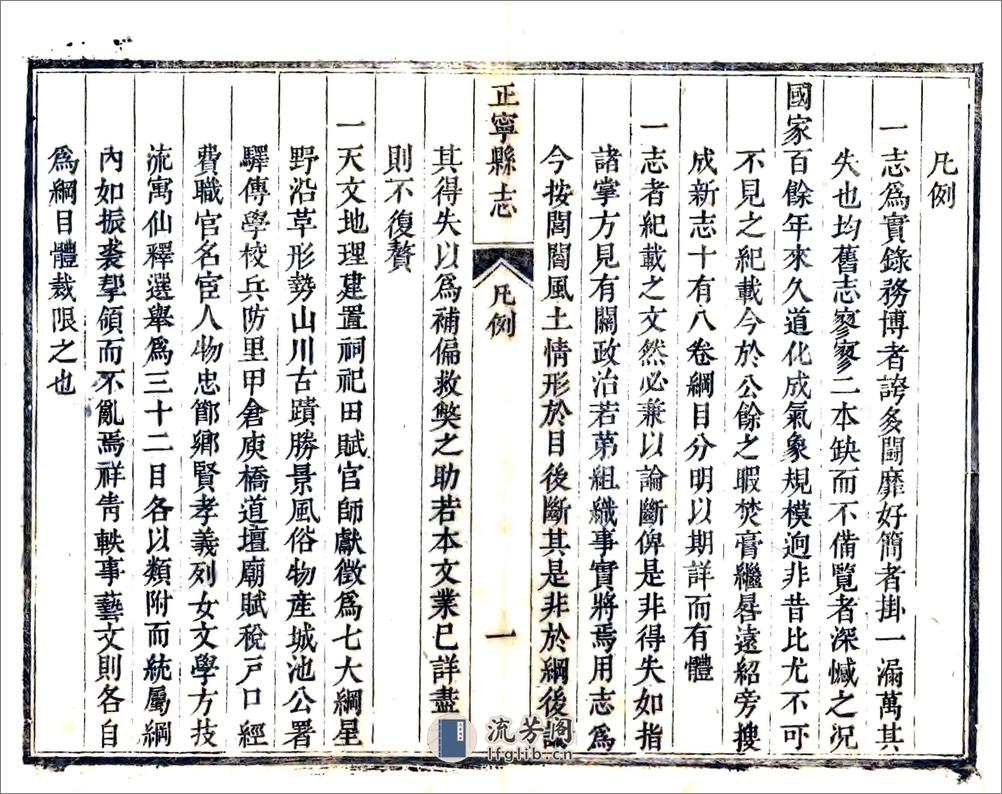 凡例
一志爲實錄務博者誇多鬭靡好簡者掛一漏萬其
失也均舊志寥寥二本缺而不備覽者深憾之况
國家百餘年來久道化成氣象規模逈非昔比尤不可
不見之紀載今於公餘之暇焚膏繼晷遠紹旁搜
成新志十有八卷綱目分明以期詳而有體
一志者紀載之文然必兼以論斷俾是非得失如指
諸掌方見有關政治若第組織事實將焉用志爲
今按閭閻風土情形於目後斷其是非於綱後
正寧縣志
凡例
一
其得失以爲補偏救獘之助若本文業已詳盡
則不復贅
一天文地理建置祠祀田賦官師獻徵爲七大綱星
野沿革形勢山川古蹟勝景風俗物産城池公署
驛傳學校兵防里甲倉庾橋道壇廟賦稅戸口經
費職官名宦人物忠節鄉賢孝義列女文學方技
流寓仙釋選舉爲三十二目各以類附而統屬綱
內如振裘挈領而不亂焉祥眚軼事藝文則各自
爲綱目體裁限之也
流芳阁
lfglib.com